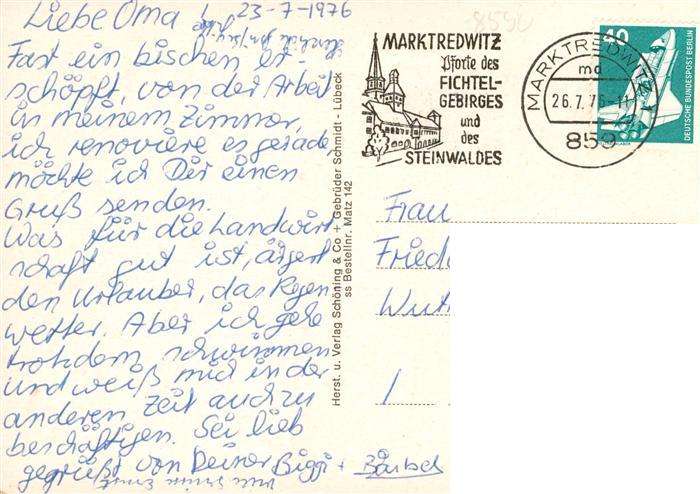 Liebe Oma! 23-7-1976
Fast ein bischen er-
schöpft, von der Arbeit
in meinem Zimmer,
ich renoviere es gerade
möchte ich Dir einen
Gruß senden.
Was für die Landwirt
schaft gut ist, ärgert
den Urlauber, das Regen
wetter. Aber ich gehe
trotzdem schwimmen
und weiß mich in der
anderen Zeit auch zu
beschäftigen. Sei lieb
gegrüßt von Deiner Biggi + Bärbel
Herst. u. Verlag Schöning & Co + Gebrüder Schmidt - Lübeck
ss Bestellnr. Matz 142
8590
MARKTREDWITZ
Pforte des
FICHTEL-
GEBIRGES
und
des
STEINWALDES
MARKTREDWITZ 1
md
26.7.76-11
859
40
DEUTSCHE BUNDESPOST BERLIN
Frau
Fried
Wun